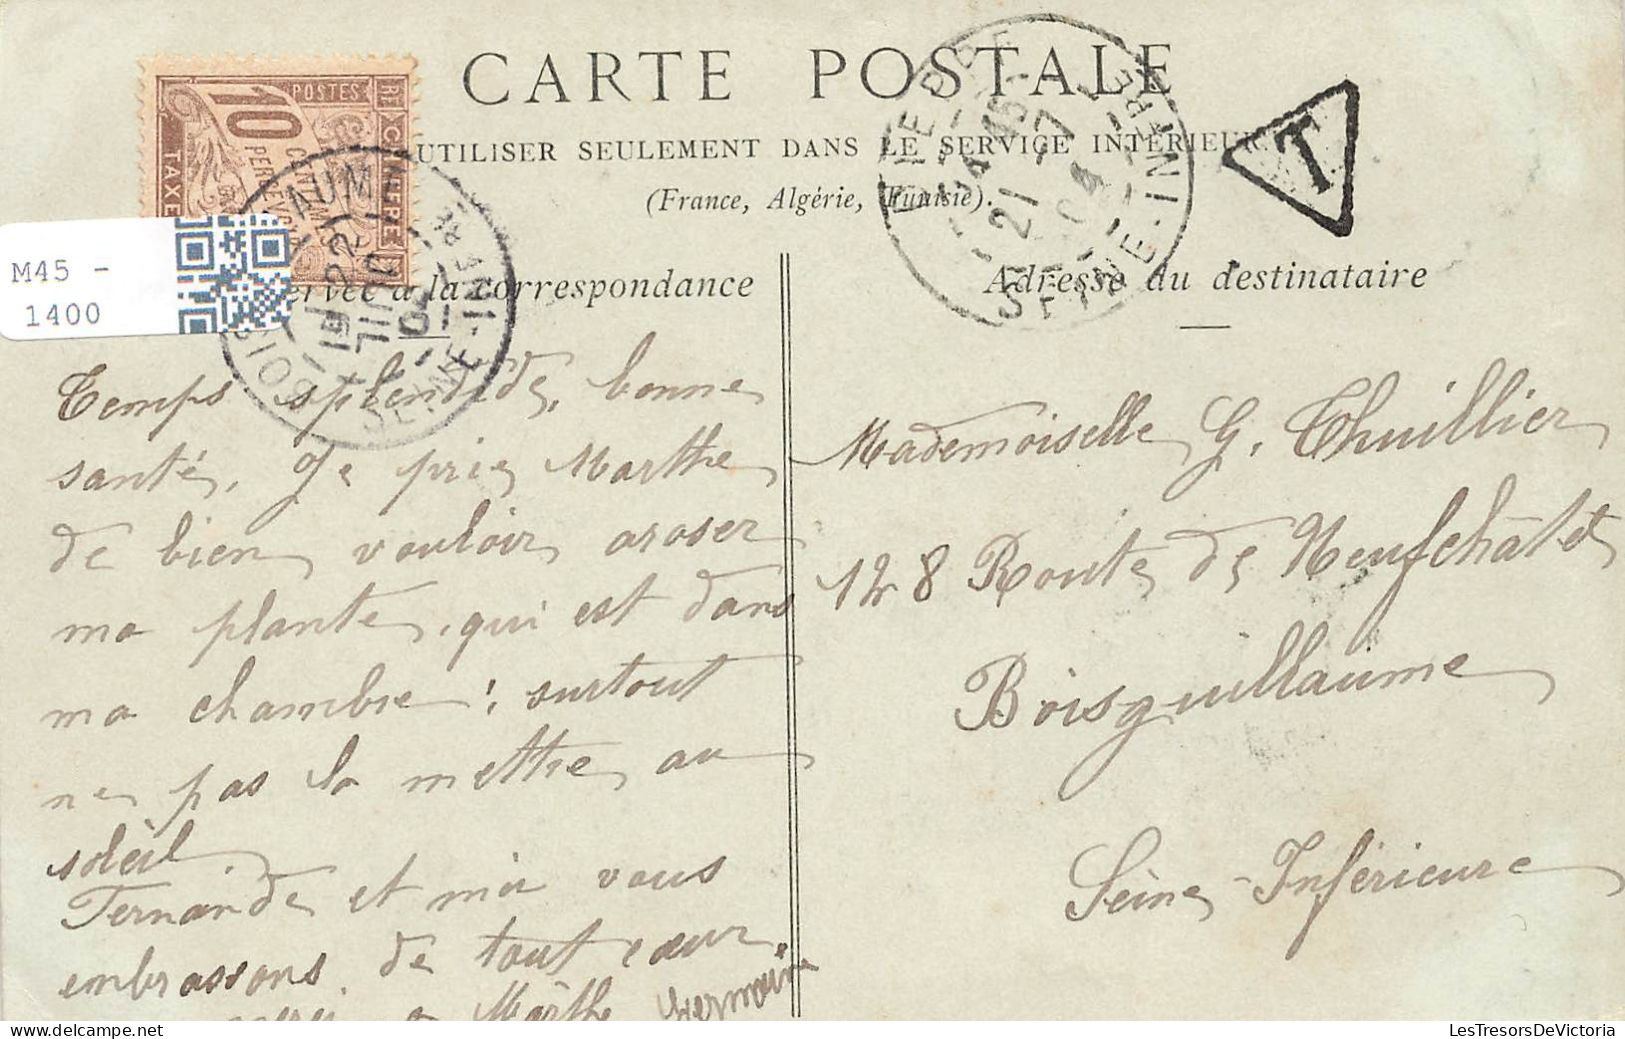 CARTE POSTALE
UTILISER SEULEMENT DANS LE SERVICE INTÉRIEUR
(France, Algérie, Tunisie).
T
POSTES
10
CENTIMES
PERCEVOIR
TAXE
M45 -
1400
à la correspondance
Adresse du destinataire
SEINE-INFRE
21
SEINE-INFRE
Temps splendide, bonne
santé. Je prie Marthe
de bien vouloir aroser
ma plante, qui est dans
ma chambre; surtout
ne pas la mettre au
soleil.
Fernande et moi vous
embrassons de tout cœur.
à Marthe Germaine
Mademoiselle G. Thuillier
128 Route de Neufchâtel
Boisguillaume
Seine-Inférieure
LesTresorsDeVictoria